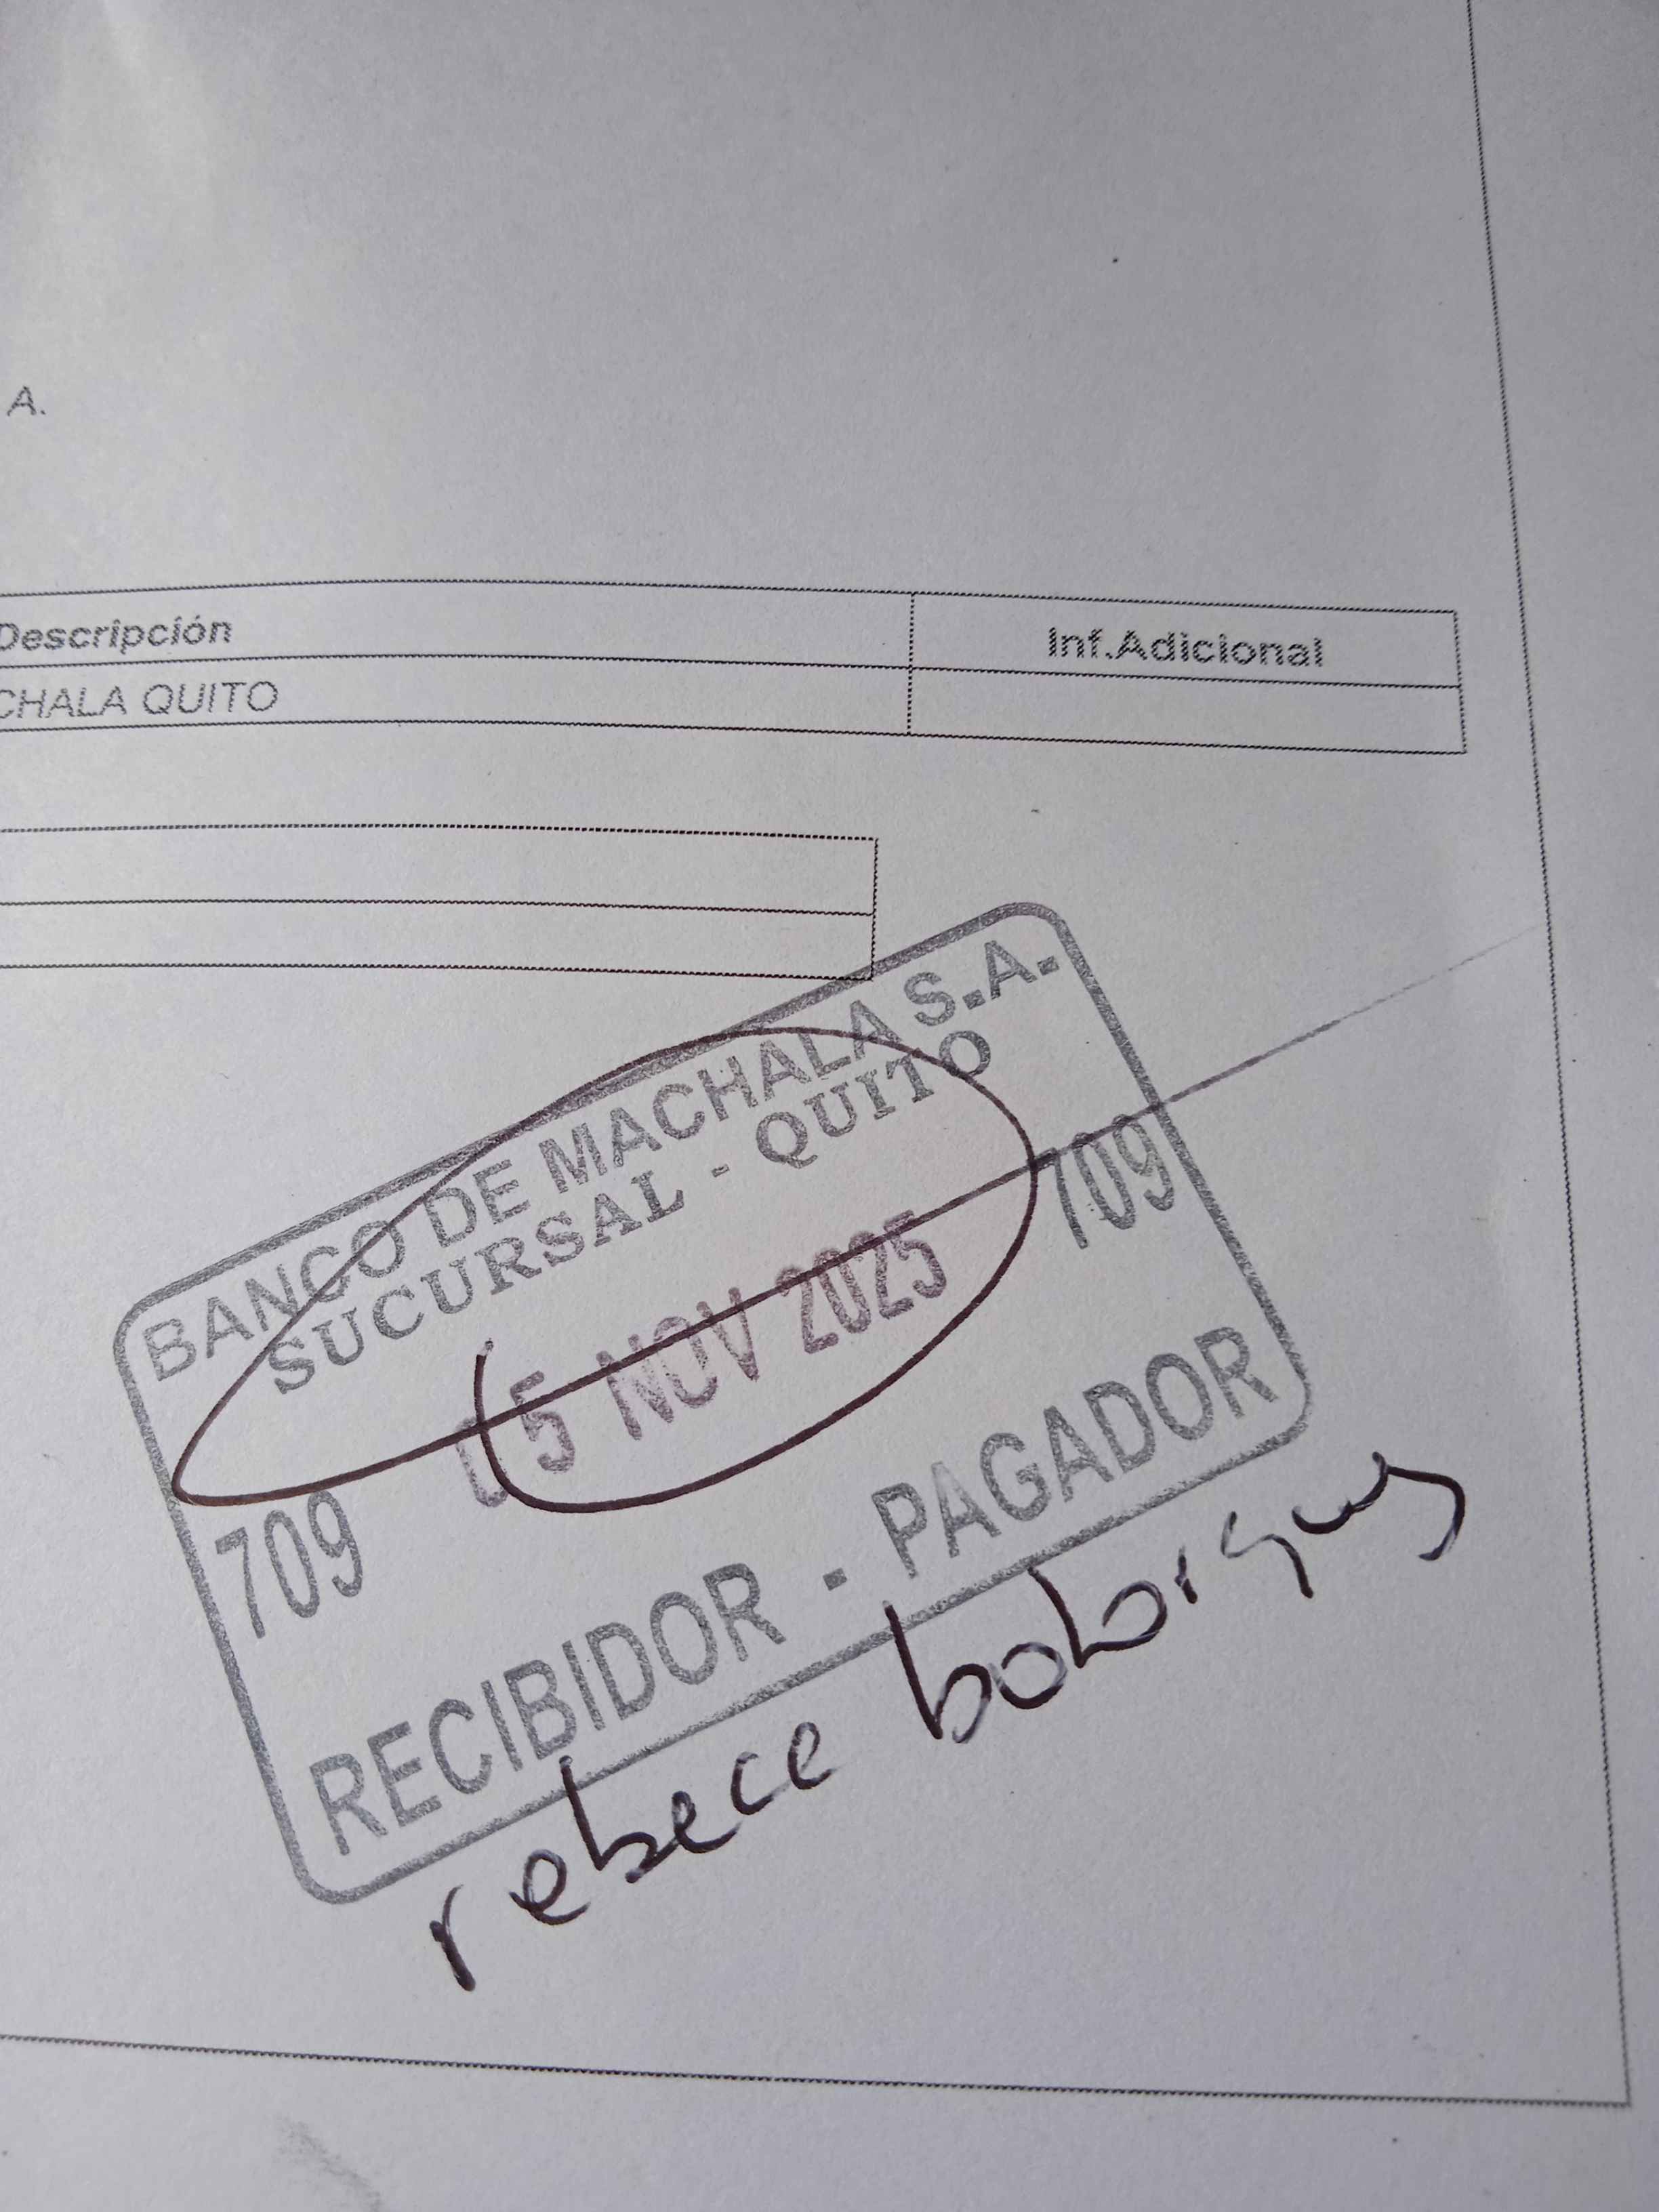 A.
Descripción Inf.Adicional
CHALA QUITO
BANCO DE MACHALA S.A.
SUCURSAL - QUITO
709 05 NOV 2025 709
RECIBIDOR - PAGADOR
rebece